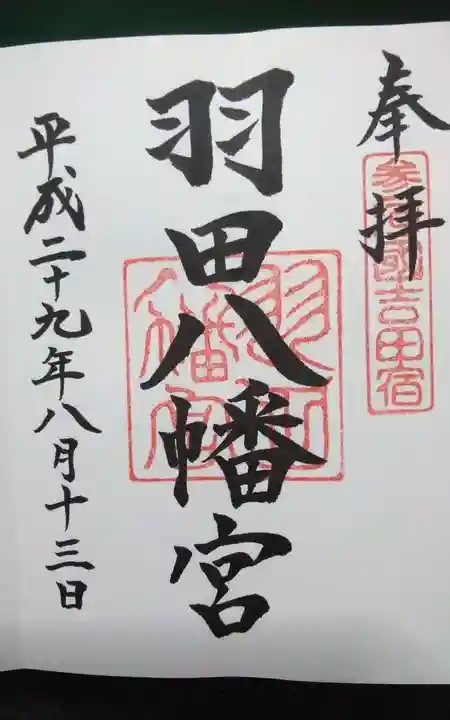 奉拝
参國吉田宿
羽田八幡宮
羽田八幡宮
平成二十九年八月十三日